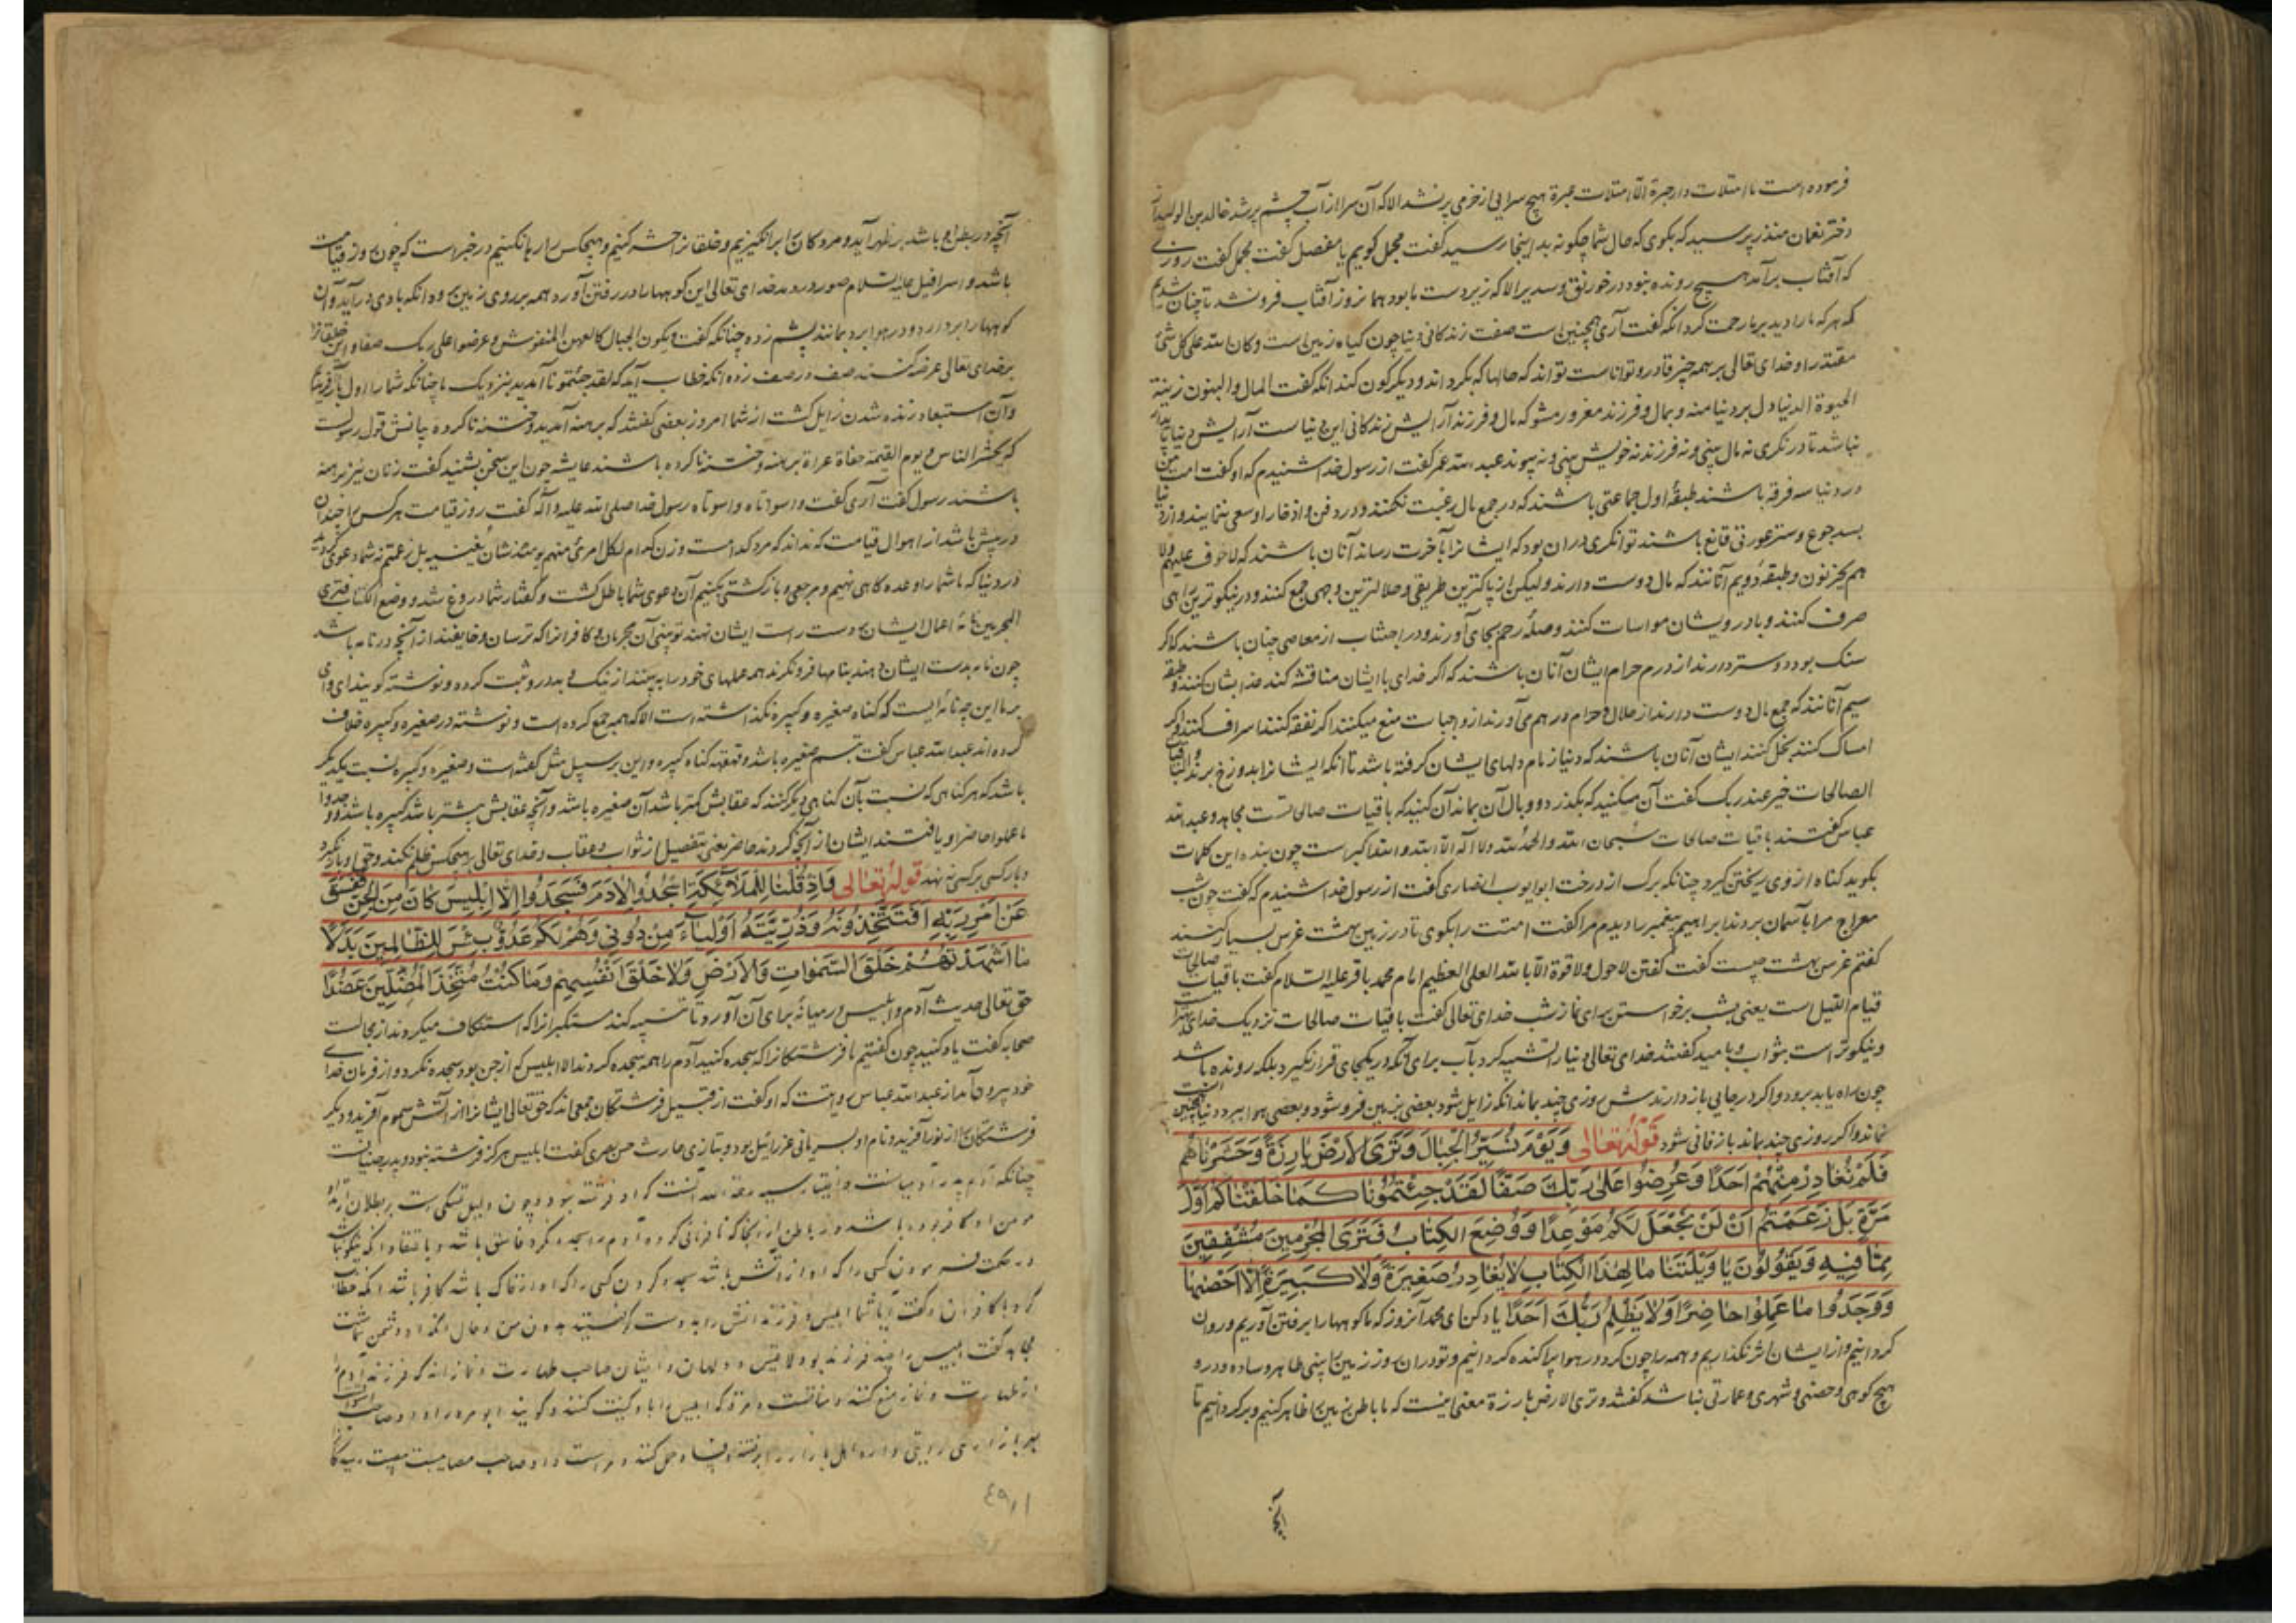 فرموده است ما امتلات دار حبرة الا امتلات عبرة هیچ سرایی از خرمی پر نشد الا که آن سرا از آب چشم پر شد خالد بن الولید از
دختر نعمان منذر پرسید که بکوی که حال شما چکونه بد اینجا رسید کفت مجمل کویم یا مفصل کفت مجمل کفت روزی
که آفتاب برآمد هیچ رونده نبود در خورنق و سدیر الا که زیر دست ما بود هما نروز آفتاب فرو نشد تا چنان شدیم
که هر که ما را دید بر ما رحمت کرد آنکه کفت آری همچنین است صفت زندکانی دنیا چون کیاه زمین است و کان الله علی کل شئ
مقتدرا و خدای تعالی بر همه چیز قادر و تواناست تواند که حالها که بکرداند و دیکر کون کند آنکه کفت المال والبنون زینة
الحیوة الدنیا دل بر دنیا منه و بمال و فرزند مغرور مشو که مال و فرزند آرایش زندکانی این دنیاست آرایش دنیا پایدار
نباشد تا در نکری نه مال بینی و نه فرزند نه خویش بینی و نه پیوند عبد الله عمر کفت از رسول خدا شنیدم که او کفت امت من
در دنیا سه فرقه باشند طبقهٔ اول جماعتی باشند که در جمع مال رغبت نکنند و در دفن و اذخار او سعی ننمایند و از دنیا
بسد جوع و ستر عورتی قانع باشند توانکری در آن بود که ایشانرا بآخرت رساند آنان باشند که لا خوف علیهم ولا
هم یحزنون و طبقهٔ دویم آنانند که مال دوست دارند ولیکن از پاکترین طریقی و حلالترین وجهی جمع کنند و در نیکوترین راهی
صرف کنند و با درویشان مواسات کنند و صلهٔ رحم بجای آورند و در اجتناب از معاصی چنان باشند که اکر
سنک بود دوستر دارند از درم حرام ایشان آنان باشند که اکر خدای با ایشان مناقشه کند عذابشان کنند و طبقهٔ
سیم آنانند که جمع مال دوست دارند از حلال و حرام و در هم می آورند از واجبات منع میکنند اکر نفقه کنند اسراف کنند و اکر
امساک کنند بخل کنند ایشان آنان باشند که دنیا زمام دلهای ایشان کرفته باشد تا آنکه ایشانرا بدوزخ برند و الباقیات
الصالحات خیر عند ربک کفت آن میکنید که بکذرد و وبال آن بماند آن کنید که باقیات صالحاتست مجاهد و عبد الله
عباس کفتند باقیات صالحات سبحان الله و الحمد لله و لا اله الا الله و الله اکبر است چون بنده این کلمات
بکوید کناه از وی ریختن کیرد چنانکه برک از درخت ابو ایوب انصاری کفت از رسول خدا شنیدم که کفت چون شب
معراج مرا بآسمان بردند ابراهیم پیغمبر را دیدم مرا کفت امتت را بکوی تا در زمین بهشت غرس بسیار کنند
کفتم غرس بهشت چیست کفت کفتن لا حول ولا قوة الا بالله العلی العظیم امام محمد باقر علیه السلام کفت باقیات صالحات
قیام اللیل است یعنی بشب برخواستن برای نماز شب خدای تعالی کفت باقیات صالحات نزدیک خدای بهتر است
و نیکوتر است بثواب و بامید کفتند خدای تعالی دنیا را تشبیه کرد بآب برای آنکه در یکجای قرار نکیرد بلکه رونده باشد
چون راه یابد برود و اکر در جایی باز دارندش روزی چند بماند آنکه زایل شود بعضی بزمین فرو شود و بعضی هوا ببرد دنیا همچنین است
نماند و اکر روزی چند بماند باز فانی شود قوله تعالی وَيَوْمَ نُسَيِّرُ الْجِبَالَ وَتَرَى الْأَرْضَ بَارِزَةً وَحَشَرْنَاهُمْ
فَلَمْ نُغَادِرْ مِنْهُمْ أَحَدًا وَعُرِضُوا عَلَى رَبِّكَ صَفًّا لَقَدْ جِئْتُمُونَا كَمَا خَلَقْنَاكُمْ أَوَّلَ
مَرَّةٍ بَلْ زَعَمْتُمْ أَنْ لَنْ نَجْعَلَ لَكُمْ مَوْعِدًا وَوُضِعَ الْكِتَابُ فَتَرَى الْمُجْرِمِينَ مُشْفِقِينَ
مِمَّا فِيهِ وَيَقُولُونَ يَا وَيْلَتَنَا مَا لِهَذَا الْكِتَابِ لَا يُغَادِرُ صَغِيرَةً وَلَا كَبِيرَةً إِلَّا أَحْصَيهَا
وَوَجَدُوا مَا عَمِلُوا حَاضِرًا وَلَا يَظْلِمُ رَبُّكَ أَحَدًا یاد کن ای محمد آنروز که ما کوهها را برفتن آوریم و روان
کردانیم و از ایشان اثر نکذاریم و همه را چون کرد در هوا پراکنده کردانیم و تو در آن روز زمین را بینی ظاهر و ساده و در و
هیچ کوهی و حصنی و شهری و عمارتی نباشد کفتند و تری الارض بارزة معنی اینست که ما باطن زمین را ظاهر کنیم و برکردانیم تا
آنچه
آنچه در بطن او باشد بر ظهر آید و مردکان را برانکیزیم و خلقانرا حشر کنیم و هیچکس را رها نکنیم در خبر است که چون روز قیامت
باشد و اسرافیل علیه السلام صور در دمد خدای تعالی این کوهها را در رفتن آورد همه بر روی زمین آنکه بادی در آید و آن
کوهها را بردارد و در هوا برد بمانند پشم زده چنانکه کفت و تکون الجبال کالعهن المنفوش و عرضوا علی ربک صفا و این خلقانرا
بر خدای تعالی عرضه کنند صف در صف زده آنکه خطاب آید که لقد جئتمونا آمدید بنزدیک ما چنانکه شما را اول بار آفریدیم
و آن استبعاد زنده شدن زایل کشت از شما امروز بعضی کفتند که برهنه آمدید و ختنه ناکرده بیانش قول رسولست
که یحشر الناس یوم القیمة حفاة عراة برهنه و ختنه ناکرده باشند عایشه چون این سخن بشنید کفت زنان نیز برهنه
باشند رسول کفت آری کفت وا سوأتاه وا سوأتاه رسول خدا صلی الله علیه و آله کفت روز قیامت هر کس را چندان
در پیش باشد از اهوال قیامت که نداند که مرد کدامست و زن کدام لکل امرئ منهم یومئذ شان یغنیه بل زعمتم نه شما دعوی کردید
در دنیا که ما شما را وعده کاهی ننهیم و مرجعی و بازکشتی نکنیم آن دعوی شما باطل کشت و کفتار شما دروغ شد و وضع الکتاب فتری
المجرمین نامهٔ اعمال ایشان بدست راست ایشان نهند تو بینی آن مجرمان و کافرانرا که ترسان و خایفند از آنچه در نامه باشد
چون نامه بدست ایشان دهند بنامها فرو نکرند همه عملهای خود را به بینند از نیک و بد درو ثبت کرده و نوشته کویند ای وای
بر ما این چه نامه ایست که کناه صغیره و کبیره نکذاشته است الا که همه جمع کرده است و نوشته در صغیره و کبیره خلاف
کرده اند عبد الله عباس کفت تبسم صغیره باشد و قهقهه کناه کبیره و این بر سبیل مثل کفته است و صغیره و کبیره نسبت بیکدیکر
باشد که هر کناهی که نسبت بآن کناهی دیکر کنند که عقابش کمتر باشد آن صغیره باشد و آنچه عقابش بیشتر باشد کبیره باشد و وجدوا
ما عملوا حاضرا و یافتند ایشان از آنچه کردند حاضر یعنی بتفصیل از ثواب و عقاب و خدای تعالی بر هیچکس ظلم نکند و حق او باز نکیرد
و بار کسی بر کسی ننهد قوله تعالی وَإِذْ قُلْنَا لِلْمَلَائِكَةِ اسْجُدُوا لِآدَمَ فَسَجَدُوا إِلَّا إِبْلِيسَ كَانَ مِنَ الْجِنِّ فَفَسَقَ
عَنْ أَمْرِ رَبِّهِ أَفَتَتَّخِذُونَهُ وَذُرِّيَّتَهُ أَوْلِيَاءَ مِنْ دُونِي وَهُمْ لَكُمْ عَدُوٌّ بِئْسَ لِلظَّالِمِينَ بَدَلًا
مَا أَشْهَدْتُهُمْ خَلْقَ السَّمٰوَاتِ وَالْأَرْضِ وَلَا خَلْقَ أَنْفُسِهِمْ وَمَا كُنْتُ مُتَّخِذَ الْمُضِلِّينَ عَضُدًا
حق تعالی حدیث آدم و ابلیس در میانه برای آن آورد تا تنبیه کند مستکبرانرا که استنکاف میکردند از مجالست
صحابه کفت یاد کنید چون کفتیم ما فرشتکانرا که سجده کنید آدم را همه سجده کردند الا ابلیس که از جن بود سجده نکرد و از فرمان خدای
خود بیرون آمد از عبد الله عباس روایت که او کفت از قبیل فرشتکان جمعی اند که حق تعالی ایشانرا از آتش سموم آفرید و دیکر
فرشتکانرا از نور آفرید و نام او بسریانی عزرائیل بود و بتازی حارث حسن بصری کفت ابلیس هرکز فرشته نبود و پدر جنیانست
چنانکه آدم پدر آدمیانست
مجاهد کفت ابلیس را چند فرزند بود
٤٩١